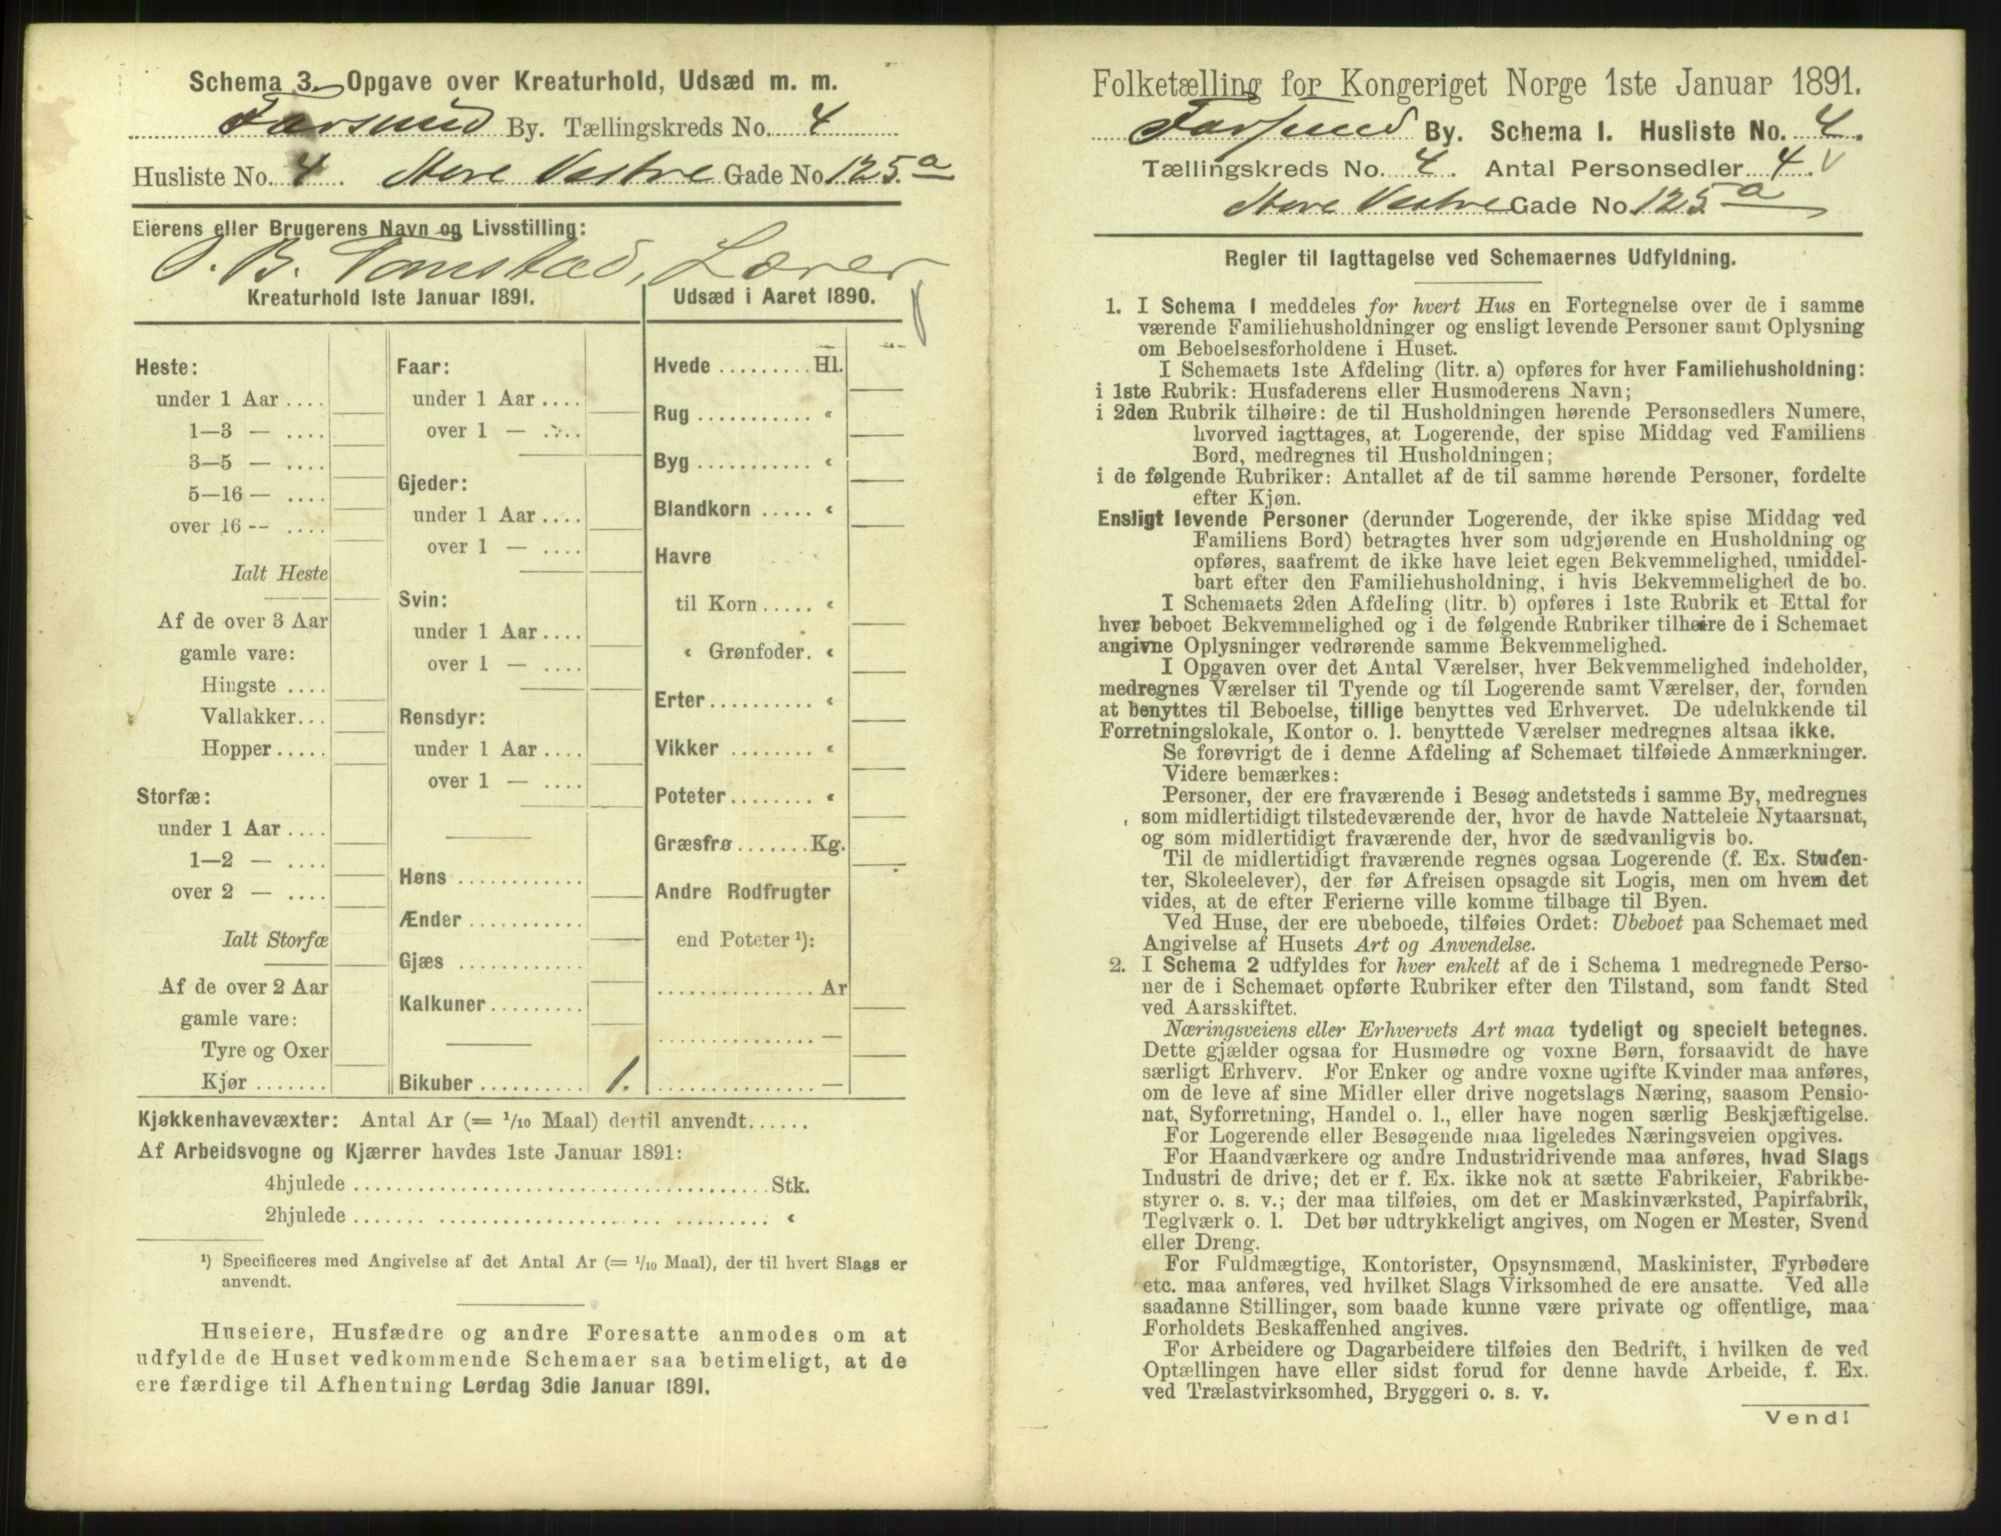 Schema 3. Opgave over Kreaturhold, Udsæd m. m.
Farsund By. Tællingskreds No. 4
Husliste No. 4. Store Vestre Gade No. 125.a
Eierens eller Brugerens Navn og Livsstilling:
O. B. Tomstad, Lærer
Kreaturhold 1ste Januar 1891.
Heste:
under 1 Aar ....
1—3 — ....
3—5 — ....
5—16 — ....
over 16 -- ....
Ialt Heste
Af de over 3 Aar
gamle vare:
Hingste ....
Vallakker...
Hopper ....
Storfæ:
under 1 Aar ....
1—2 — ....
over 2 — ....
Ialt Storfæ
Af de over 2 Aar
gamle vare:
Tyre og Oxer
Kjør .......
Faar:
under 1 Aar ....
over 1 — ....
Gjeder:
under 1 Aar ....
over 1 — ....
Svin:
under 1 Aar ....
over 1 — ....
Rensdyr:
under 1 Aar ....
over 1 — ....
Høns ............
Ænder ...........
Gjæs ............
Kalkuner.........
Bikuber .......... 1.
Udsæd i Aaret 1890.
Hvede ......... Hl.
Rug ........... «
Byg ........... «
Blandkorn ..... «
Havre
til Korn..... «
« Grønfoder. «
Erter.......... «
Vikker ........ «
Poteter........ «
Græsfrø ....... Kg.
Andre Rodfrugter
end Poteter ¹):
............... Ar
............... —
............... —
Kjøkkenhavevæxter: Antal Ar (= 1/10 Maal) dertil anvendt......
Af Arbeidsvogne og Kjærrer havdes 1ste Januar 1891:
4hjulede ........................................ Stk.
2hjulede ........................................ «
¹) Specificeres med Angivelse af det Antal Ar (= 1/10 Maal), der til hvert Slags er
anvendt.
Huseiere, Husfædre og andre Foresatte anmodes om at
udfylde de Huset vedkommende Schemaer saa betimeligt, at de
ere færdige til Afhentning Lørdag 3die Januar 1891.
Folketælling for Kongeriget Norge 1ste Januar 1891.
Farsund By. Schema I. Husliste No. 4.
Tællingskreds No. 4. Antal Personsedler 4.
Store Vestre Gade No. 125 a
Regler til Iagttagelse ved Schemaernes Udfyldning.
1. I Schema I meddeles for hvert Hus en Fortegnelse over de i samme
værende Familiehusholdninger og ensligt levende Personer samt Oplysning
om Beboelsesforholdene i Huset.
I Schemaets 1ste Afdeling (litr. a) opføres for hver Familiehusholdning:
i 1ste Rubrik: Husfaderens eller Husmoderens Navn;
i 2den Rubrik tilhøire: de til Husholdningen hørende Personsedlers Numere,
hvorved iagttages, at Logerende, der spise Middag ved Familiens
Bord, medregnes til Husholdningen;
i de følgende Rubriker: Antallet af de til samme hørende Personer, fordelte
efter Kjøn.
Ensligt levende Personer (derunder Logerende, der ikke spise Middag ved
Familiens Bord) betragtes hver som udgjørende en Husholdning og
opføres, saafremt de ikke have leiet egen Bekvemmelighed, umiddel-
bart efter den Familiehusholdning, i hvis Bekvemmelighed de bo.
I Schemaets 2den Afdeling (litr. b) opføres i 1ste Rubrik et Ettal for
hver beboet Bekvemmelighed og i de følgende Rubriker tilhøire de i Schemaet
angivne Oplysninger vedrørende samme Bekvemmelighed.
I Opgaven over det Antal Værelser, hver Bekvemmelighed indeholder,
medregnes Værelser til Tyende og til Logerende samt Værelser, der, foruden
at benyttes til Beboelse, tillige benyttes ved Erhvervet. De udelukkende til
Forretningslokale, Kontor o. l. benyttede Værelser medregnes altsaa ikke.
Se forøvrigt de i denne Afdeling af Schemaet tilføiede Anmærkninger.
Videre bemærkes:
Personer, der ere fraværende i Besøg andetsteds i samme By, medregnes
som midlertidigt tilstedeværende der, hvor de havde Natteleie Nytaarsnat,
og som midlertidigt fraværende der, hvor de sædvanligvis bo.
Til de midlertidigt fraværende regnes ogsaa Logerende (f. Ex. Studen-
ter, Skoleelever), der før Afreisen opsagde sit Logis, men om hvem det
vides, at de efter Ferierne ville komme tilbage til Byen.
Ved Huse, der ere ubeboede, tilføies Ordet: Ubeboet paa Schemaet med
Angivelse af Husets Art og Anvendelse.
2. I Schema 2 udfyldes for hver enkelt af de i Schema 1 medregnede Perso-
ner de i Schemaet opførte Rubriker efter den Tilstand, som fandt Sted
ved Aarsskiftet.
Næringsveiens eller Erhvervets Art maa tydeligt og specielt betegnes.
Dette gjælder ogsaa for Husmødre og voxne Børn, forsaavidt de have
særligt Erhverv. For Enker og andre voxne ugifte Kvinder maa anføres,
om de leve af sine Midler eller drive nogetslags Næring, saasom Pensio-
nat, Syforretning, Handel o. l., eller have nogen særlig Beskjæftigelse.
For Logerende eller Besøgende maa ligeledes Næringsveien opgives.
For Haandværkere og andre Industridrivende maa anføres, hvad Slags
Industri de drive; det er f. Ex. ikke nok at sætte Fabrikeier, Fabrikbe-
styrer o. s. v.; der maa tilføies, om det er Maskinværksted, Papirfabrik,
Teglværk o. l. Det bør udtrykkeligt angives, om Nogen er Mester, Svend
eller Dreng.
For Fuldmægtige, Kontorister, Opsynsmænd, Maskinister, Fyrbødere
etc. maa anføres, ved hvilket Slags Virksomhed de ere ansatte. Ved alle
saadanne Stillinger, som baade kunne være private og offentlige, maa
Forholdets Beskaffenhed angives.
For Arbeidere og Dagarbeidere tilføies den Bedrift, i hvilken de ved
Optællingen have eller sidst forud for denne havde Arbeide, f. Ex.
ved Trælastvirksomhed, Bryggeri o. s. v.
Vend!